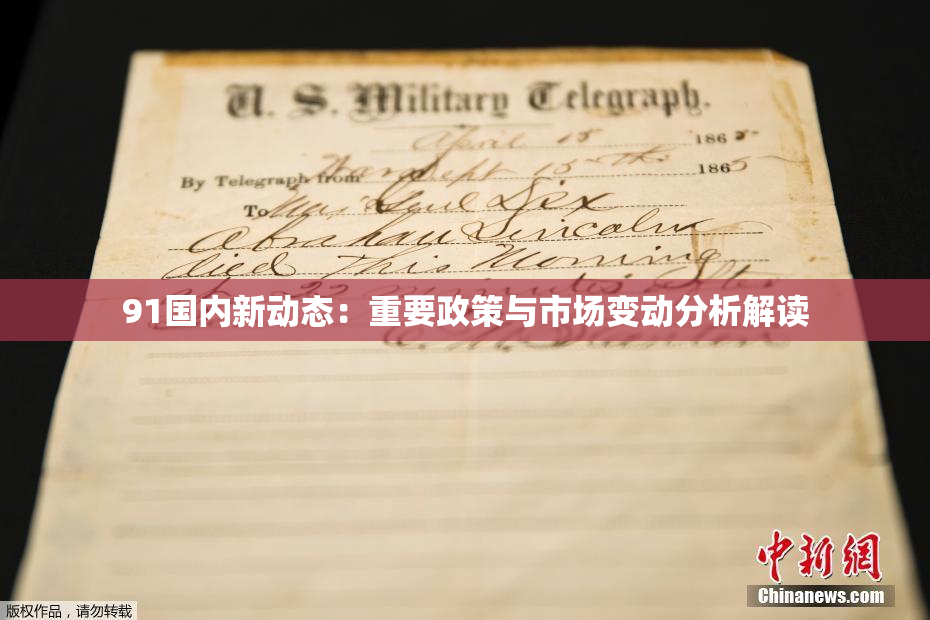 U. S. Military Telegraph.
April 15 1865
By Telegraph from War Dept 15th 1865
To Maj Genl Dix
Abraham Lincoln
died This Morning
22 minutes after
91国内新动态：重要政策与市场变动分析解读
中新网
Chinanews.com
版权作品，请勿转载